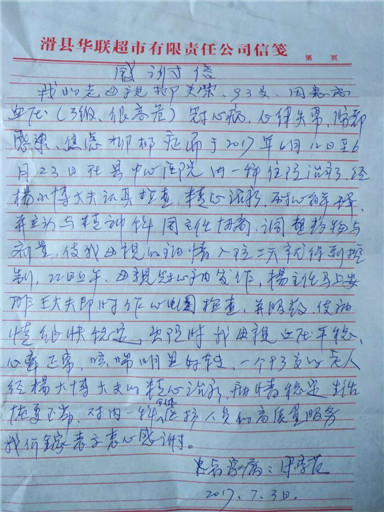 滑县华联超市有限责任公司信笺
第 页
感谢信
我的老母亲郭 荣，93岁，因患高
血压（3级，很高危）冠心病，心律失常，肺部
感染，焦虑抑郁症而于2017年6月12日至6
月23日在县中心医院内一科住院治疗，经
杨 博大夫认真检查，精心治疗，耐心
并主动与精神科 主任协商，调整药物与
剂量，使我母亲的病情入院二 天就得到控
制，22日上午，母亲冠心病发作，杨主任马上安
排王大夫即时作心电图检查，并服药，使病
情很快稳定，出院时我母亲血压平稳，
心率正常，咳喘明显好转，一个93岁的老人
经杨 博大夫的精心治疗，病情稳定，生活
恢复正常，对内一科 医护人员的高质量服务
我们全家表示衷心感谢。
患者家属：
2017.7.3日.